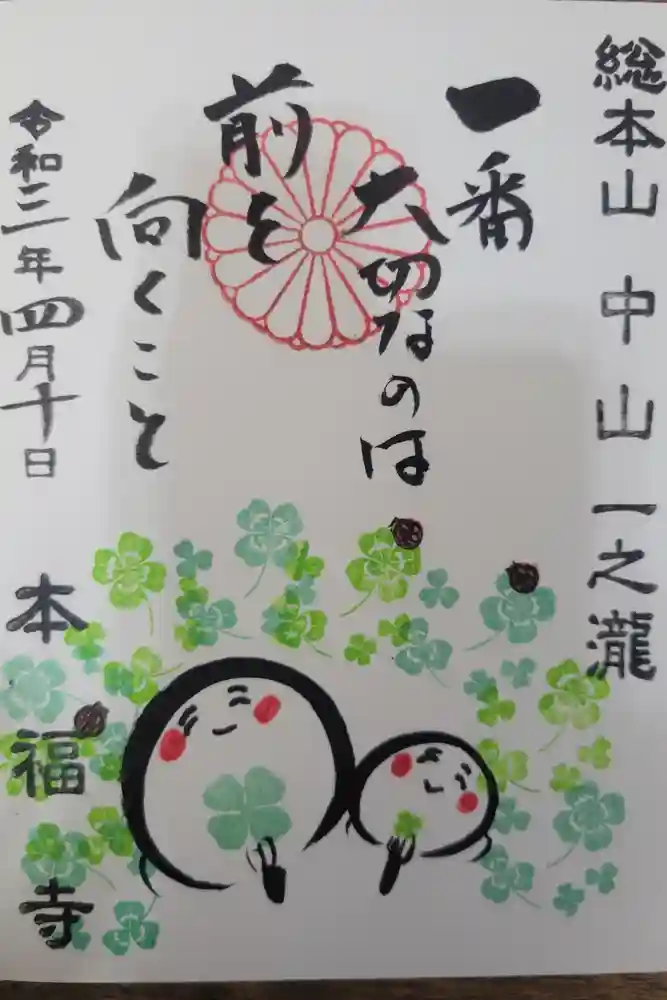 総本山 中山 一之瀧
一番
大切なのは
前を
向くこと
令和三年四月十日
本福寺